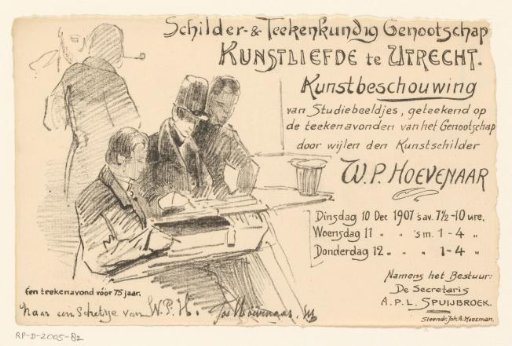 Schilder- & Teekenkundig Genootschap
KUNSTLIEFDE te UTRECHT.
Kunstbeschouwing
van Studiebeeldjes, geteekend op
de teekenavonden van het Genootschap
door wijlen den Kunstschilder
W. P. HOEVENAAR
Dinsdag 10 Dec 1907 's av. 7½-10 ure.
Woensdag 11 „ „ 's m. 1 - 4 „
Donderdag 12 „ „ „ 1 - 4 „
Namens het Bestuur:
De Secretaris
A. P. L. SPUIJBROEK.
Steendr. Joh. A. Moesman.
Een teekenavond vóór 75 jaar.
naar een Schetsje van W. P. H. Jos Hoevenaar
RP-D-2005-82